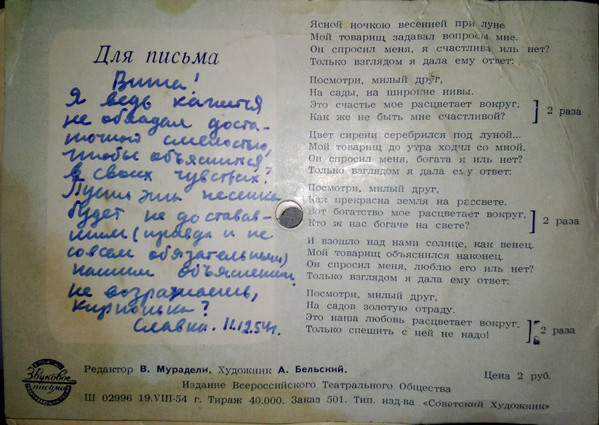 Для письма
Вита!
Я ведь кажется
не обладал доста-
точной смелостью,
чтобы объясниться
в своих чувствах?
Пусть эта песенка
будет не достава-
ним (правда и не
совсем обязательным)
нашим объяснением.
не возражаешь,
Славка. 11.12.54г.
Ясной ночкою весенней при луне
Мой товарищ задавал вопросы мне.
Он спросил меня, я счастлива иль нет?
Только взглядом я дала ему ответ:
Посмотри, милый друг,
На сады, на широкие нивы.
Это счастье мое расцветает вокруг,
Как же не быть мне счастливой?
2 раза
Цвет сирени серебрился под луной...
Мой товарищ до утра ходил со мной.
Он спросил меня, богата я иль нет?
Только взглядом я дала ему ответ:
Посмотри, милый друг,
Как прекрасна земля на рассвете.
Вот богатство мое расцветает вокруг,
Кто ж нас богаче на свете?
2 раза
И взошло над нами солнце, как венец.
Мой товарищ объяснился наконец.
Он спросил меня, люблю его иль нет?
Только взглядом я дала ему ответ:
Посмотри, милый друг,
На садов золотую отраду.
Это наша любовь расцветает вокруг,
Только спешить с ней не надо!
2 раза
Звуковое
письмо
Редактор В. Мурадели. Художник А. Бельский.
Цена 2 руб.
Издание Всероссийского Театрального Общества
Ш 02996 19.VIII-54 г. Тираж 40.000. Заказ 501. Тип. изд-ва «Советский Художник»